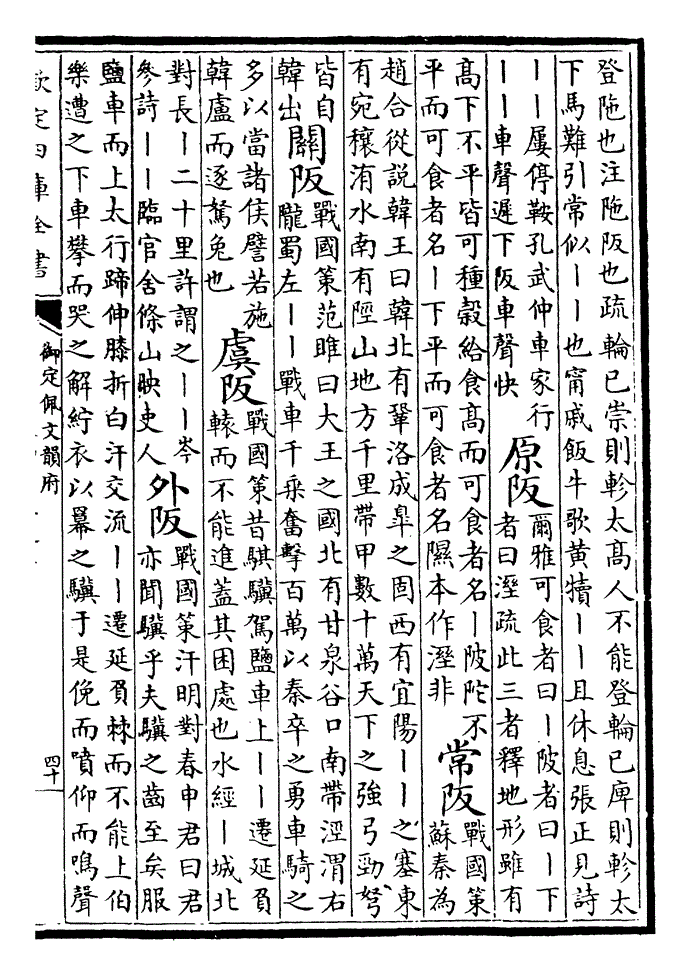 登阤也注阤阪也疏輪已崇則軫太高人不能登輪已庳則軫太
下馬難引常似丨丨也甯戚飯牛歌黄犢丨丨且休息張正見詩
丨丨屢停鞍孔武仲車家行
丨丨車聲遲下阪車聲快
原阪
爾雅可食者曰丨陂者曰丨下
者曰溼疏此三者釋地形雖有
高下不平皆可種穀給食高而可食者名丨陂陀不
平而可食者名丨下平而可食者名隰本作溼非
常阪
戰國策
蘇秦為
趙合從說韓王曰韓北有鞏洛成臯之固西有宜陽丨丨之塞東
有宛穰洧水南有陘山地方千里帶甲數十萬天下之強弓勁弩
皆自
韓出
關阪
戰國策范雎曰大王之國北有甘泉谷口南帶涇渭右
隴蜀左丨丨戰車千乘奮擊百萬以秦卒之勇車騎之
多以當諸侯譬若施
韓盧而逐駑兔也
虞阪
戰國策昔騏驥駕鹽車上丨丨遷延負
轅而不能進蓋其困處也水經丨城北
對長丨二十里許謂之丨丨岑
參詩丨丨臨官舍條山映吏人
外阪
戰國策汗明對春申君曰君
亦聞驥乎夫驥之齒至矣服
鹽車而上太行蹄伸膝折白汗交流丨丨遷延負棘而不能上伯
樂遭之下車攀而哭之解紵衣以冪之驥于是俛而噴仰而鳴聲
欽定四庫全書
御定佩文韻府
四十